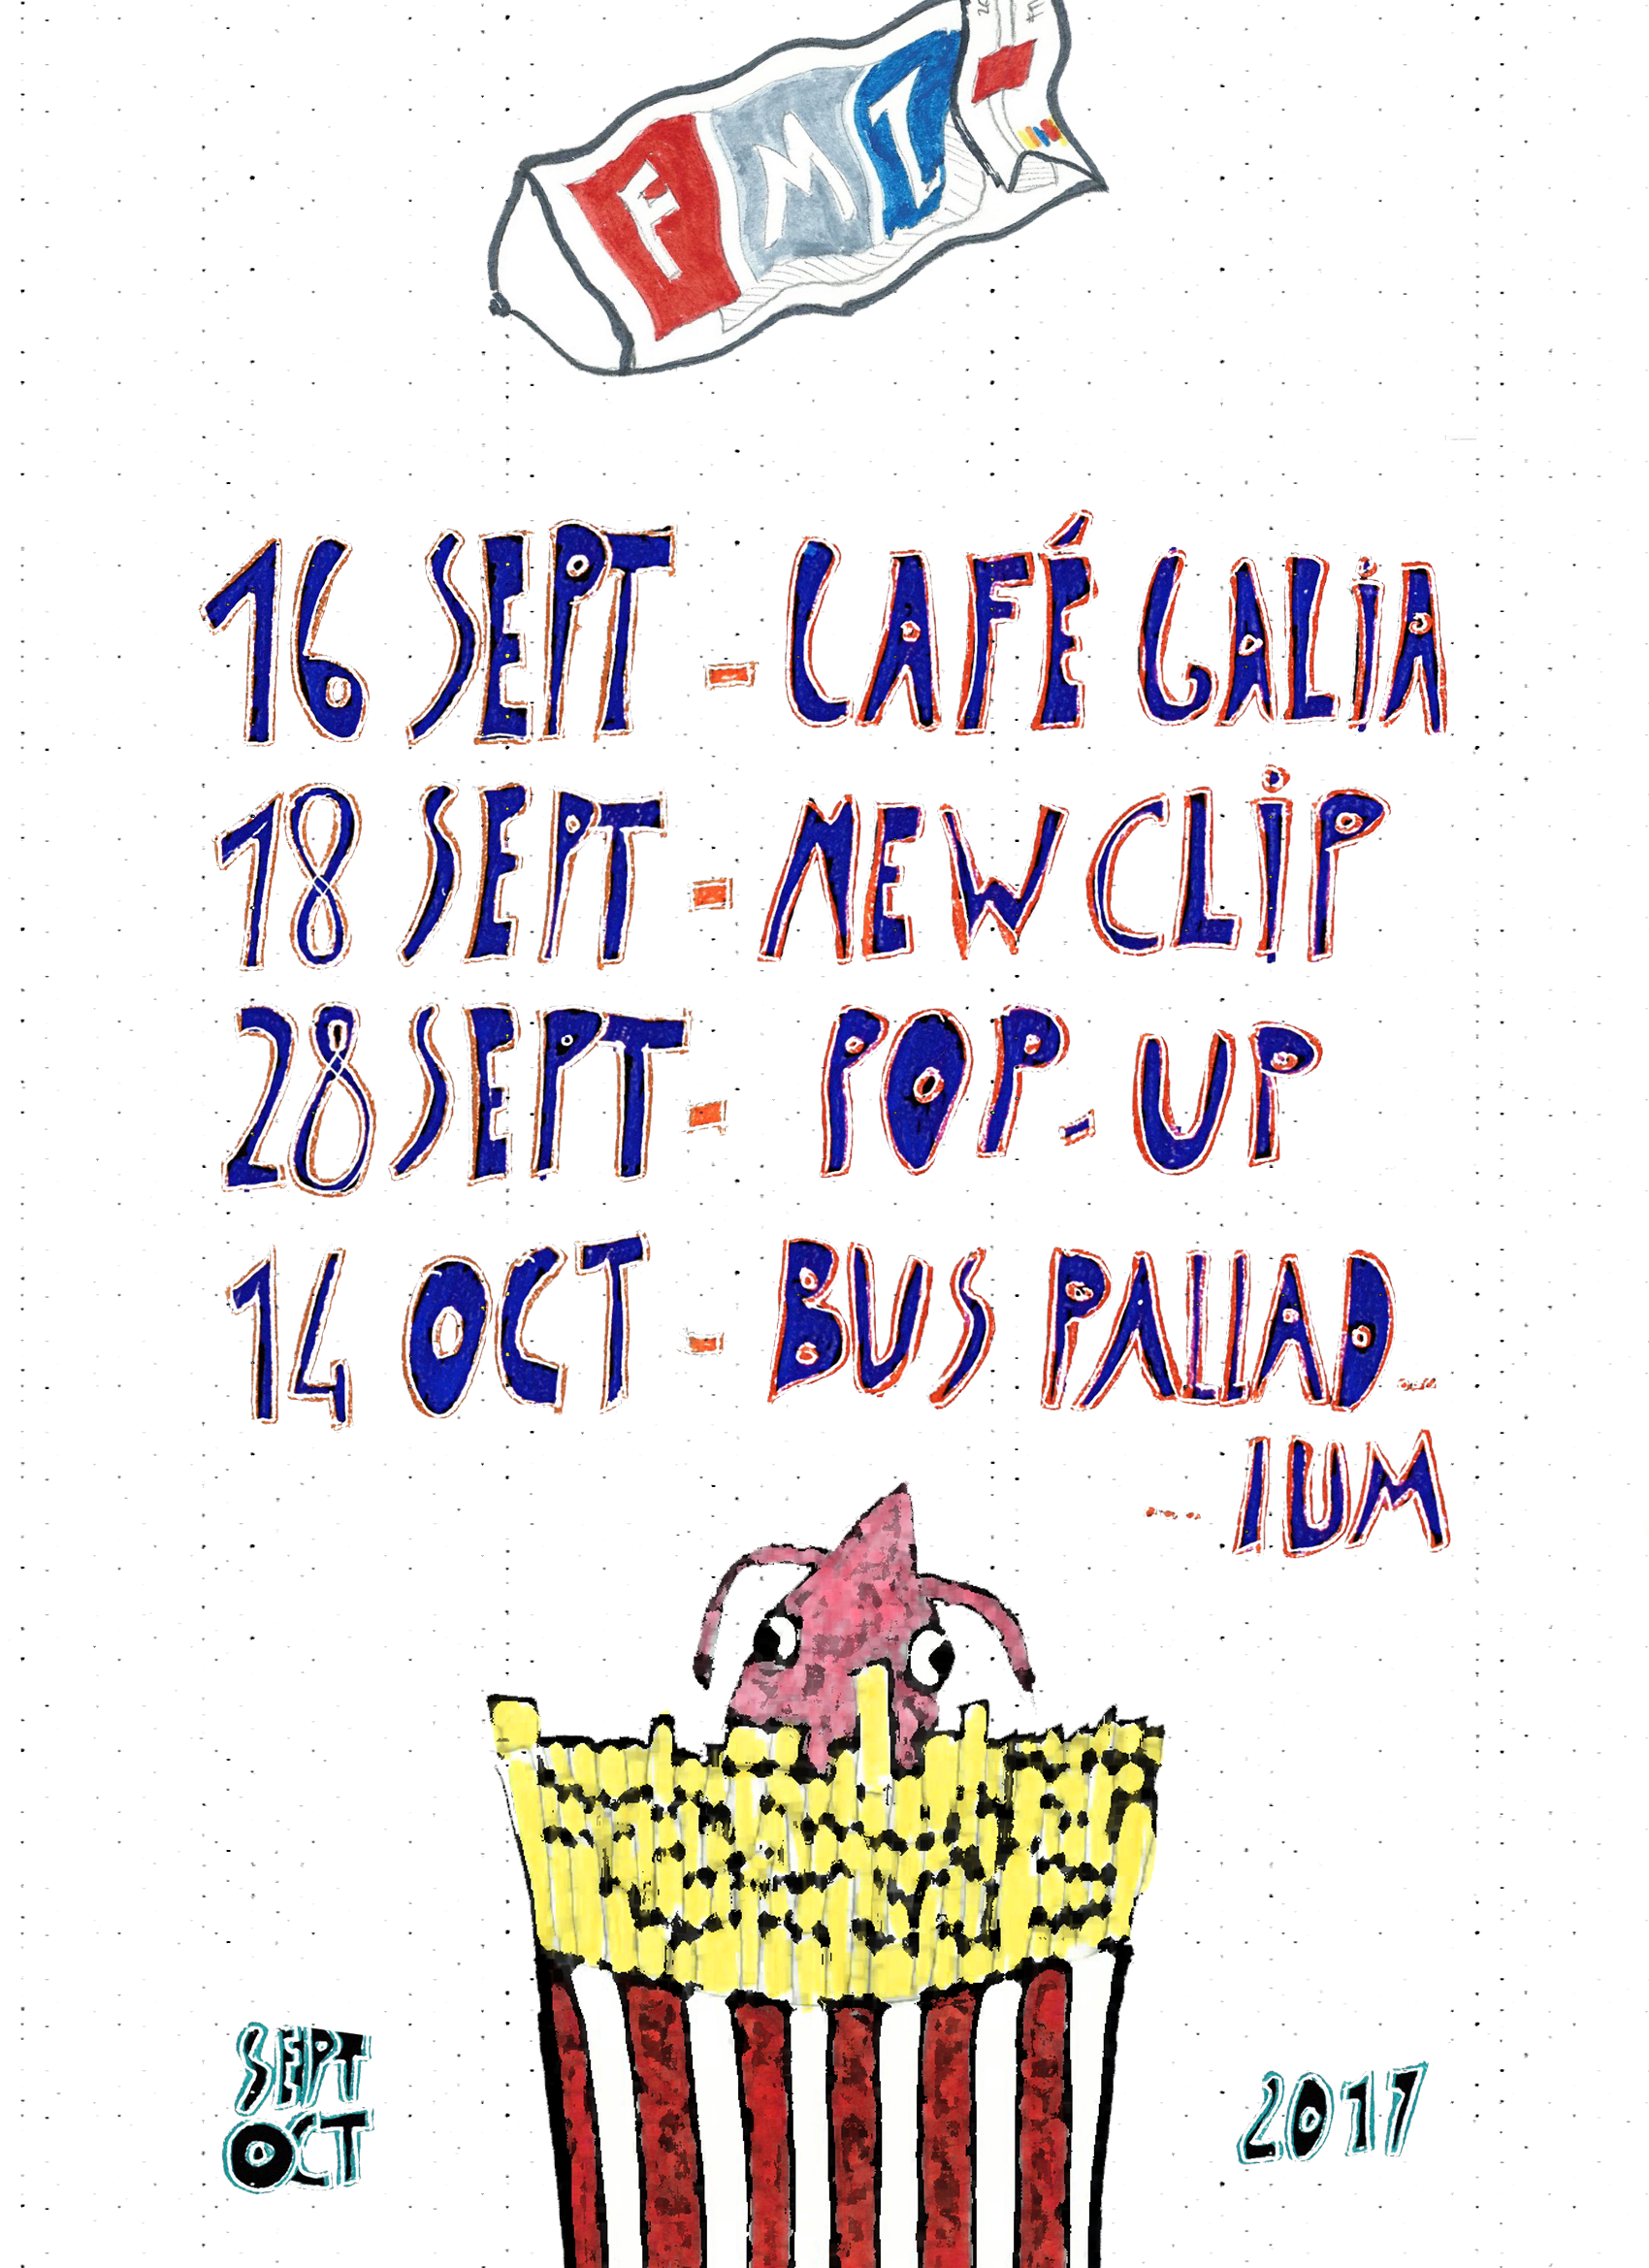 FMZ
16 SEPT - CAFÉ GALIA
18 SEPT - NEW CLIP
28 SEPT - POP-UP
14 OCT - BUS PALLAD...
... IUM
SEPT
OCT
2017